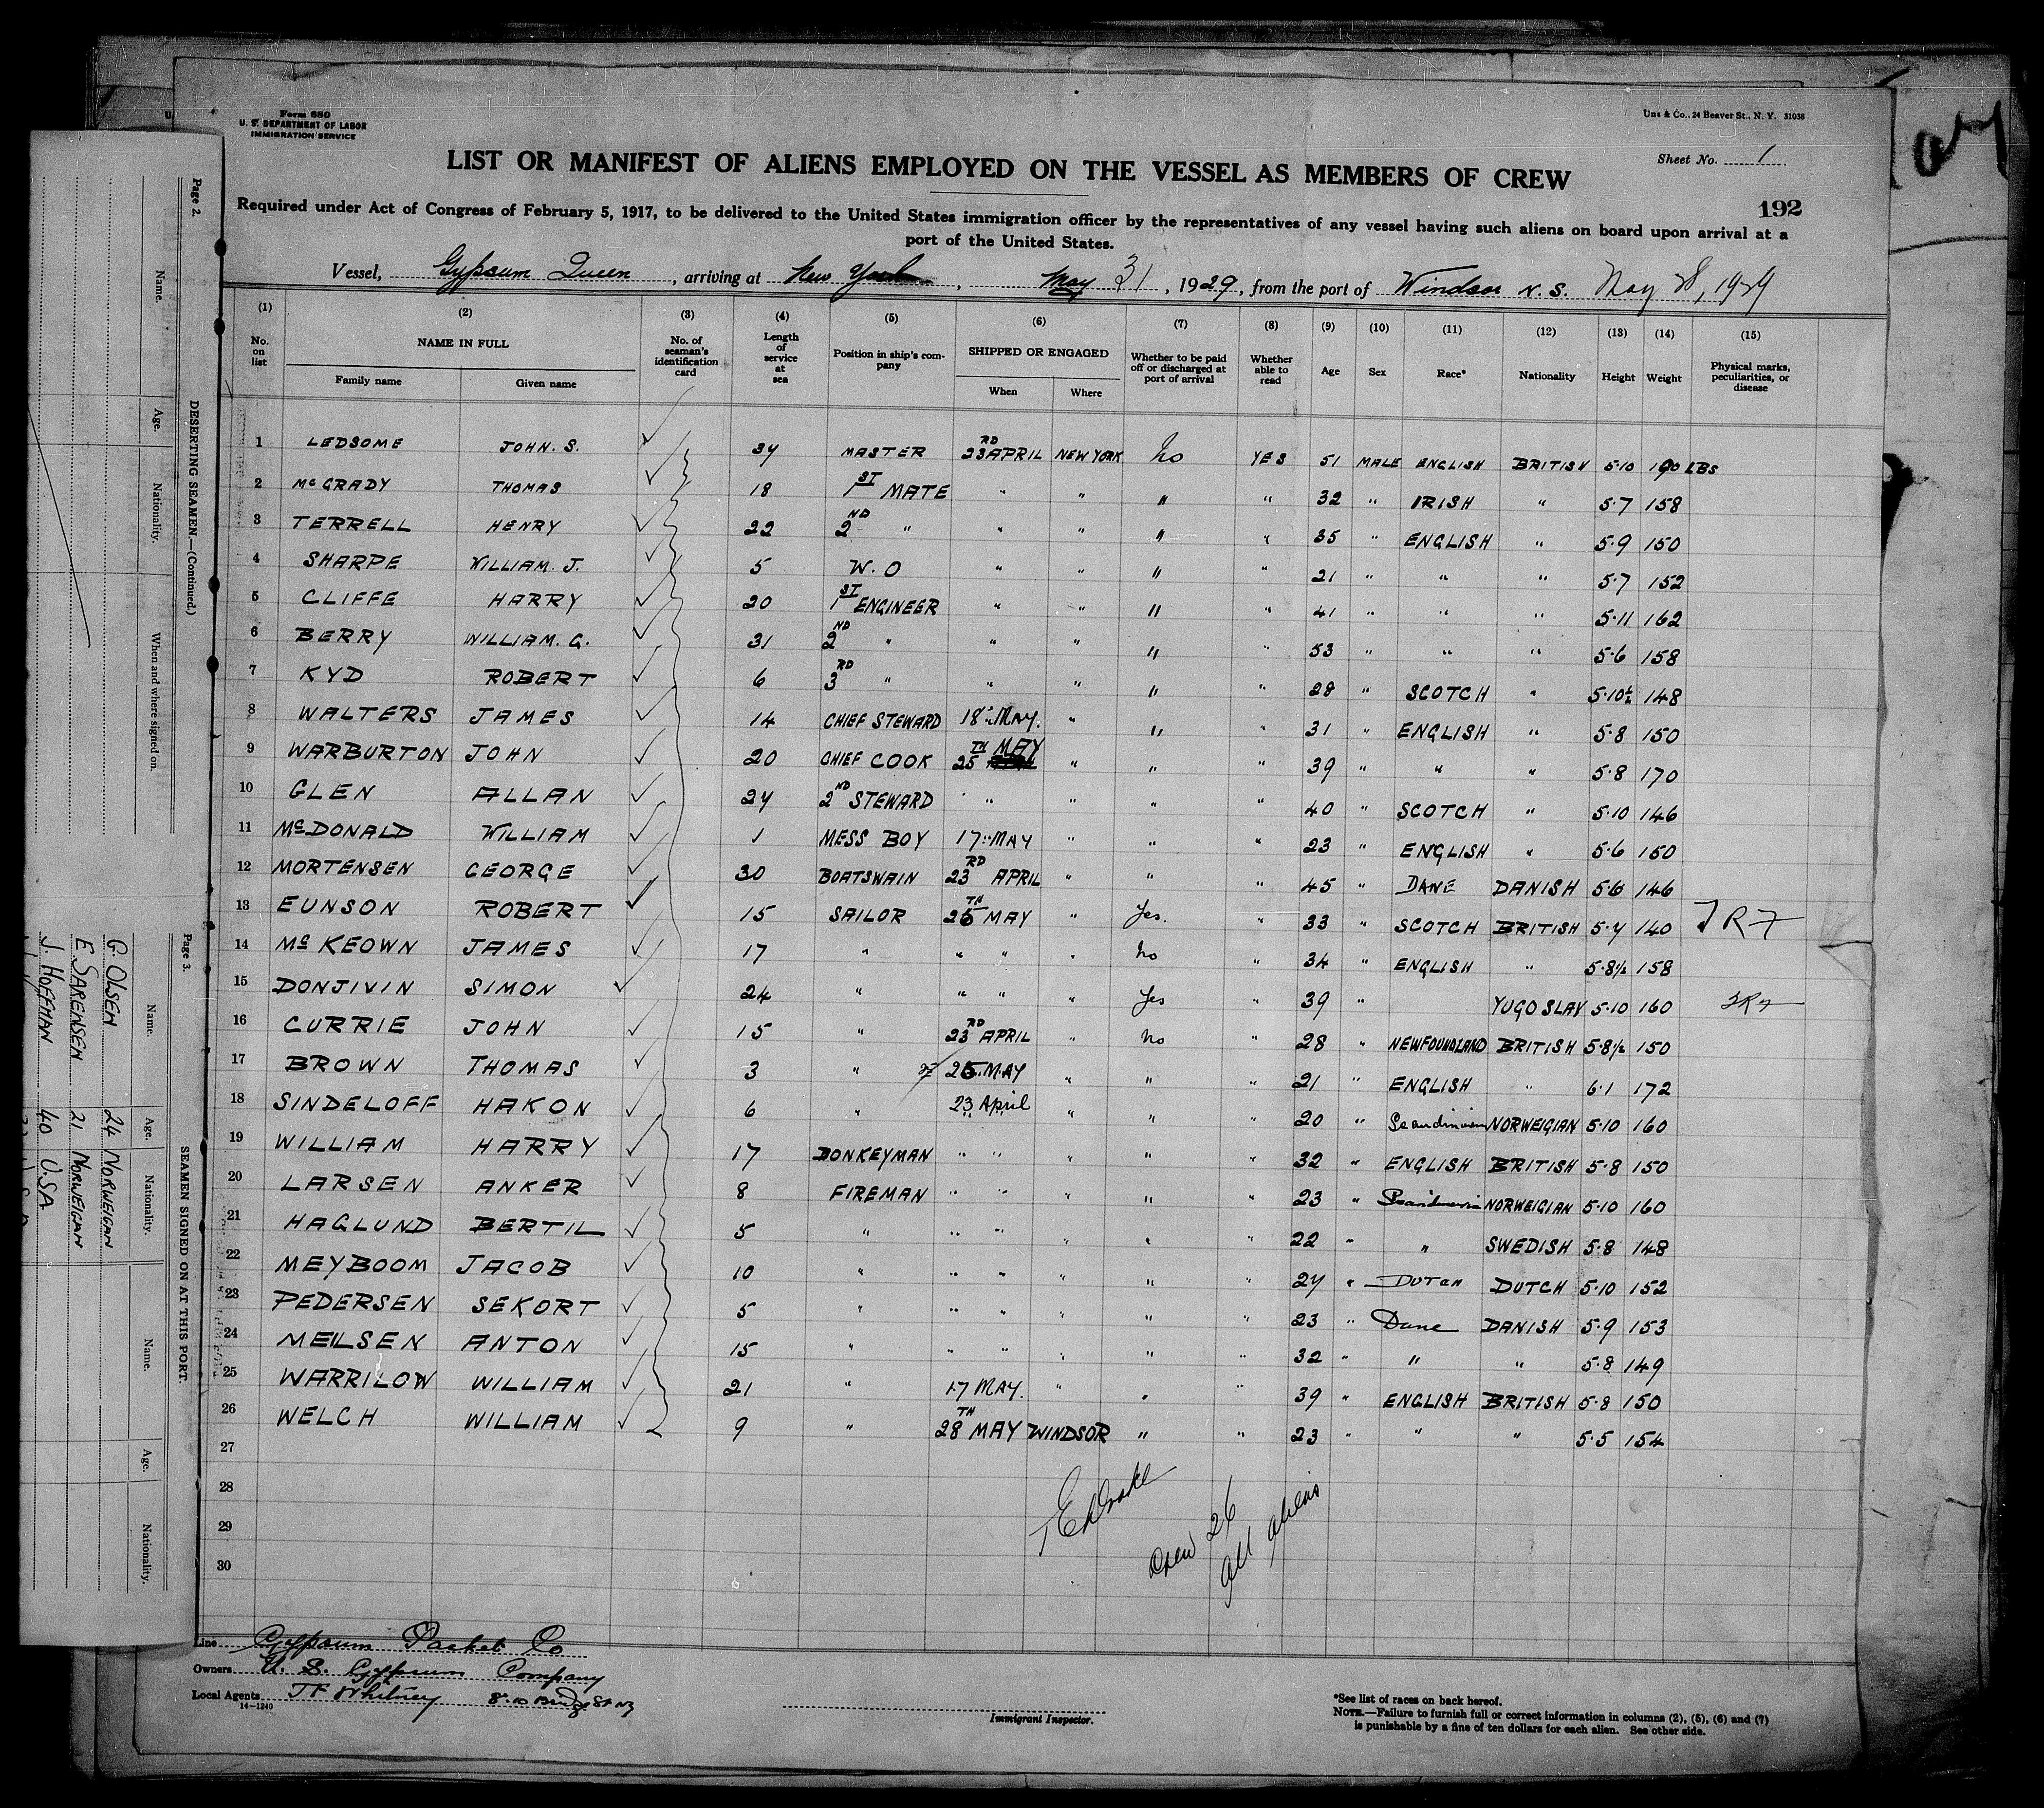 Form 680
U. S. DEPARTMENT OF LABOR
IMMIGRATION SERVICE
Uns & Co., 24 Beaver St., N. Y. 31038
LIST OR MANIFEST OF ALIENS EMPLOYED ON THE VESSEL AS MEMBERS OF CREW
Sheet No. 1
192
Required under Act of Congress of February 5, 1917, to be delivered to the United States immigration officer by the representatives of any vessel having such aliens on board upon arrival at a
port of the United States.
Vessel, Gypsum Queen, arriving at New York, May 31, 1929, from the port of Windsor N.S. May 28, 1929
(1) (2) (3) (4) (5) (6) (7) (8) (9) (10) (11) (12) (13) (14) (15)
No. on list NAME IN FULL Family name Given name No. of seaman's identification card Length of service at sea Position in ship's company SHIPPED OR ENGAGED When Where Whether to be paid off or discharged at port of arrival Whether able to read Age Sex Race* Nationality Height Weight Physical marks, peculiarities, or disease
1 LEDSOME JOHN. S. 34 MASTER 23RD APRIL NEW YORK No YES 51 MALE ENGLISH BRITISH 5·10 190 LBS
2 McGRADY THOMAS 18 1ST MATE " " " " 32 " IRISH " 5·7 158
3 TERRELL HENRY 22 2ND " " " " " 35 " ENGLISH " 5·9 150
4 SHARPE WILLIAM. J. 5 W. O " " " " 21 " " " 5·7 152
5 CLIFFE HARRY 20 1ST ENGINEER " " " " 41 " " " 5·11 162
6 BERRY WILLIAM. G. 31 2ND " " " " " 53 " " " 5·6 158
7 KYD ROBERT 6 3RD " " " " " 28 " SCOTCH " 5·10½ 148
8 WALTERS JAMES 14 CHIEF STEWARD 18" MAY. " " " 31 " ENGLISH " 5·8 150
9 WARBURTON JOHN 20 CHIEF COOK 25TH MAY " " " 39 " " " 5·8 170
10 GLEN ALLAN 24 2ND STEWARD " " " " 40 " SCOTCH " 5·10 146
11 McDONALD WILLIAM 1 MESS BOY 17" MAY " " " 23 " ENGLISH " 5·6 150
12 MORTENSEN GEORGE 30 BOATSWAIN 23RD APRIL " " " 45 " DANE DANISH 5·6 146
13 EUNSON ROBERT 15 SAILOR 25TH MAY " Yes. " 33 " SCOTCH BRITISH 5·4 140
14 McKEOWN JAMES 17 " " " " No " 34 " ENGLISH " 5·8½ 158
15 DONJIVIN SIMON 24 " " " " Yes " 39 " YUGO SLAV 5·10 160
16 CURRIE JOHN 15 " 23RD APRIL " No " 28 " NEWFOUNDLAND BRITISH 5·8½ 150
17 BROWN THOMAS 3 " 25 MAY " " " 21 " ENGLISH " 6·1 172
18 SINDELOFF HAKON 6 " 23 April " " " 20 " Scandinavian NORWEIGIAN 5·10 160
19 WILLIAM HARRY 17 DONKEYMAN " " " " " 32 " ENGLISH BRITISH 5·8 150
20 LARSEN ANKER 8 FIREMAN " " " " " 23 " Scandinavia NORWEIGIAN 5·10 160
21 HAGLUND BERTIL 5 " " " " " " 22 " " SWEDISH 5·8 148
22 MEYBOOM JACOB 10 " " " " " " 24 " DUTCH DUTCH 5·10 152
23 PEDERSEN SEKORT 5 " " " " " " 23 " Dane DANISH 5·9 153
24 MELSEN ANTON 15 " " " " " " 32 " " " 5·8 149
25 WARRILOW WILLIAM 21 " 17 MAY. " " " 39 " ENGLISH BRITISH 5·8 150
26 WELCH WILLIAM 9 " 28TH MAY WINDSOR " " 23 " " " 5·5 154
27
28
29
30
Crew 26
all aliens
Line Gypsum Packet Co
Owners U. S. Gypsum Company
Local Agents J F Whitney 8-10 Bridge St NY
14—1240
Immigrant Inspector.
*See list of races on back hereof.
NOTE.—Failure to furnish full or correct information in columns (2), (5), (6) and (7)
is punishable by a fine of ten dollars for each alien. See other side.
Page 2.
DESERTING SEAMEN.—(Continued.)
Name. Age. Nationality. When and where signed on.
Page 3.
SEAMEN SIGNED ON AT THIS PORT.
Name. Age. Nationality. Name. Age. Nationality.
G. OLSEN 24 NORWEIGAN
E. SARENSEN 21 NORWEIGAN
J. HOFFMAN 40 U.S.A